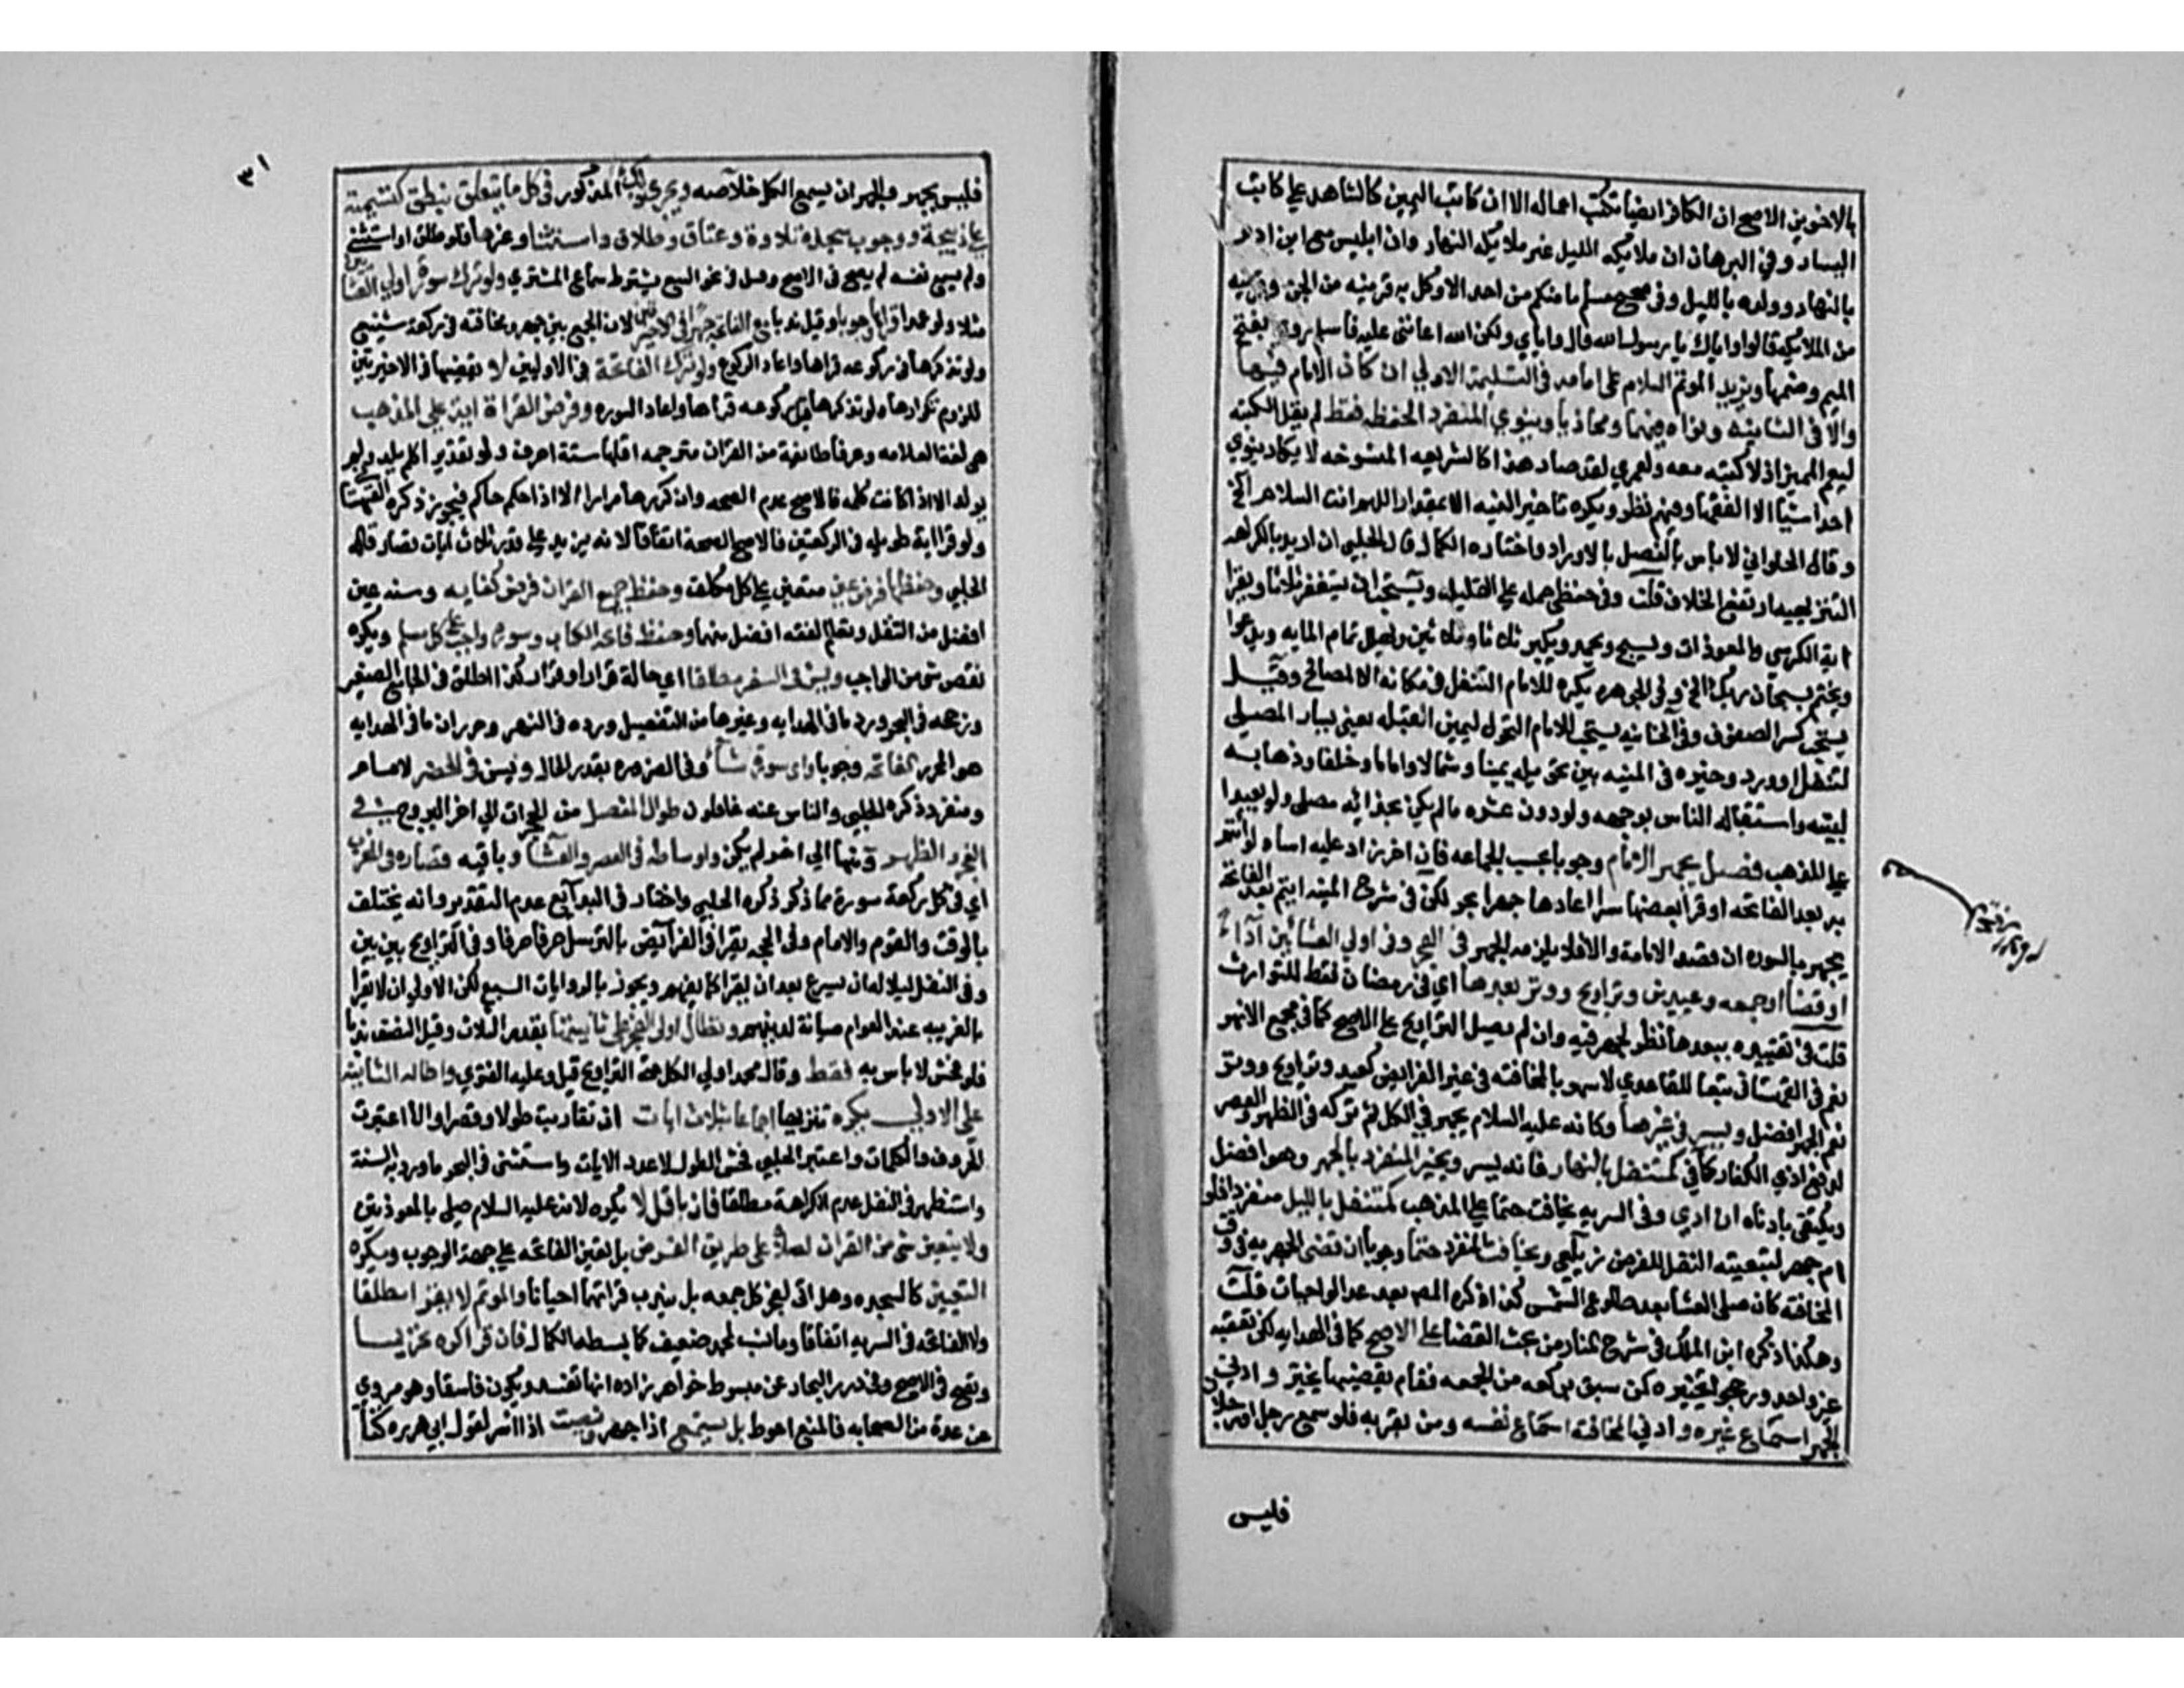 بالاخنوين الاصح ان الكافر ايضا تكتب اعماله الا ان كاتب اليمين كالشاهد على كاتب
اليسار وفي البرهان ان ملائكه الليل غير ملائكه النهار وان ابليس مع ابن ادم
بالنهار وولده بالليل وفي صحيح مسلم ما منكم من احد الا وكل به قرينه من الجن وقرينه
من الملائكه قالوا واياك يا رسول الله قال واياي ولكن الله اعانني عليه فاسلم روي بفتح
الميم وضمها ويزيد الموتم السلام على امامه في التسليمة الاولي ان كان الامام فيها
والا في الثانيه ونواه فيهما ومحاذيا وينوي المنفرد الحفظه فقط لم يقل الكتبه
ليعم المميز اذ لا كتبه معه ولعمري لقد صار هذا كالشريعه المنسوخه لا يكاد ينوي
احد شيا الا الفقها وفيهم نظر ويكره تاخير السنه الا بمقدار اللهم انت السلام الخ
وقال الحلواني لا باس بالفصل بالاوراد واختاره الكمال قال الحلبي ان اريد بالكراهه
التنزيهيه ارتفع الخلاف قلت وفي حفظي حمله علي القليله ويستحب ان يستغفر ثلاثا ويقرا
اية الكرسي والمعوذات ويسبح ويحمد ويكبر ثلاثا وثلاثين ويهلل تمام المايه ويدعوا
ويختم بسبحان ربك الخ وفي الجوهره يكره للامام التنفل في مكانه لا للمصالح وقيل
يستحب كسر الصفوف وفي الخانيه يستحب للامام التحول ليمين القبله يعني يسار المصلي
لتنفل او ورد وخيره في المنيه بين تحويله يمينا وشمالا واماما وخلفا وذهابه
لبيته واستقباله الناس بوجهه ولو دون عشره ما لم يكن بحذائه مصلي ولو بعيدا
على المذهب فصل يجهر الامام وجوبا بحسب الجماعه فان زاد عليه اساء ولو ائتم
به بعد الفاتحه او قرا بعضها سرا اعادها جهرا بحر لكن في شرح المنيه ايتم بعد الفاتحة
يجهر بالسوره ان قصد الامامة والا فلا يلزمه الجهر في الفجر وفي اولي العشائين آداء
او قضا او جمعه وعيدين وتراويح ووتر بعدها اي في رمضان فقط للتوارث
قلت في تقييده ببعدها نظر لجهره فيه وان لم يصل التراويح على الاصح كما في مجمع الانهر
نعم في القهستاني تبعا للقاعدي لا سهو بالمخافته في غير الفرائض كعيد وتراويح ووتر
نعم الجهر افضل ويسر في غيرها وكان عليه السلام يجهر في الكل ثم تركه في الظهر والعصر
لدفع اذي الكفار كافي كمتنفل بالنهار فانه يسر ويخير المنفرد بالجهر وهو افضل
ويكتفي بادناه ان ادي وفي السريه يخافت حتما على المذهب كمتنفل بالليل منفردا فلو
ام جهر لتبعية النفل للفرض زيلعي ويخافت المنفرد حتما وجوبا ان قضى الجهريه في وقت
المخافته كان صلى العشا بعد طلوع الشمس كذا ذكره المص بعد عد الواجبات قلت
وهكذا ذكره ابن الملك في شرح المنار من بحث القضا على الاصح كما في الهدايه لكن تعقبه
غير واحد ورجحوا تخييره كمن سبق بركعه من الجمعه فقام يقضيها يخير وادنى
الجهر اسماع غيره وادني المخافته اسماع نفسه ومن بقربه فلو سمع رجل او رجلان
فليس
٣١
فليس بجهر والجهر ان يسمع الكل خلاصه ويجري ذلك المذكور في كل ما يتعلق بنطق كتسمية
على ذبيحة ووجوب سجدة تلاوة وعتاق وطلاق واستثنا وغيرها فلو طلق او استثنى
ولم يسمع نفسه لم يصح في الاصح وقيل في نحو البيع يشترط سماع المشتري ولو ترك سورة اولي العشا
مثلا ولو عمدا قراها وجوبا وقيل ندبا مع الفاتحة جهرا في الاخريين لان الجمع بين جهر ومخافته في ركعة شنيع
ولو تذكرها في ركوعه قراها واعاد الركوع ولو ترك الفاتحة في الاوليين لا يقضيها في الاخيرتين
للزوم تكرارها ولو تذكرها قبل ركوعه قراها واعاد السوره وفرض القراة اية على المذهب
هي لغة العلامه وعرفا طايفة من القران مترجمه اقلها ستة احرف ولو تقديرا كلم يلد
يولد الا اذا كانت كلمه فالاصح عدم الصحه وان كررها مرارا الا اذا حكم حاكم فيجوز ذكره القهستاني
ولو قرا اية طويله في الركعتين فالاصح الصحه اتفاقا لانه يزيد على قدر ثلاث ايات قصار قاله
الحلبي وحفظها فرض عين متعين على كل مكلف وحفظ جميع القران فرض كفايه وسنه عين
افضل من التنفل وتعلم الفقه افضل منهما وحفظ فاتحة الكتاب وسورة واجب على كل مسلم ويكره
نقص شي من الواجب ويسن في السفر مطلقا اي حالة قرار او فرار كذا اطلق في الجامع الصغير
ورجحه في البحر ورد ما في الهدايه وغيرها من التفصيل ورده في النهر وحرر ان ما في الهدايه
هو المحرر الفاتحة وجوبا واي سورة شاء وفي الضروره بقدر الحال ويسن في الحضر لامام
ومنفرد ذكره الحلبي والناس عنه غافلون طوال المفصل من الحجرات الي اخر البروج في
الفجر والظهر ومنها الي اخر لم يكن اوساطه في العصر والعشاء وباقيه قصاره في المغرب
اي في كل ركعة سورة مما ذكر ذكره الحلبي واختار في البدايع عدم التقدير وانه يختلف
بالوقت والقوم والامام وفي الحجه يقرا في الفرايض بالترسل حرفا حرفا وفي التراويح بين بين
وفي النفل ليلا له ان يسرع بعد ان يقرا كما يفهم ويجوز بالروايات السبع لكن الاولي ان لا يقرا
بالغريبه عند العوام صيانة لدينهم وتطال اولى الفجر على ثانيتها بقدر الثلث وقيل النصف ندبا
فلو فحش لا باس به فقط وقال محمد اولي الكل حتى التراويح قيل وعليه الفتوي واطاله الثانيه
على الاولى يكره تنزيها اجماعا بثلاث ايات ان تقاربت طولا وقصرا والا اعتبرت
الحروف والكلمات واعتبر الحلبي فحش الطول لا عدد الايات واستثنى في البحر ما ورد به السنة
واستظهر في النفل عدم الكراهة مطلقا فان باقل لا يكره لانه عليه السلام صلى بالمعوذتين
ولا يتعين شي من القران لصلاة على طريق الفرض بل تعين الفاتحه على جهة الوجوب ويكره
التعيين كالسجده وهل اتى لفجر كل جمعه بل يندب قراتهما احيانا والموتم لا يقرا مطلقا
ولا الفاتحه في السريه اتفاقا وما نسب لمحمد ضعيف كما بسطه الكمال فان قرا كره تحريما
وتصح في الاصح وفي درر البحار عن مبسوط خواهر زاده انها تفسد ويكون فاسقا وهو مروي
عن عدة من الصحابه فالمنع احوط بل يستمع اذا جهر وينصت اذا اسر لقول ابي هريره كنا